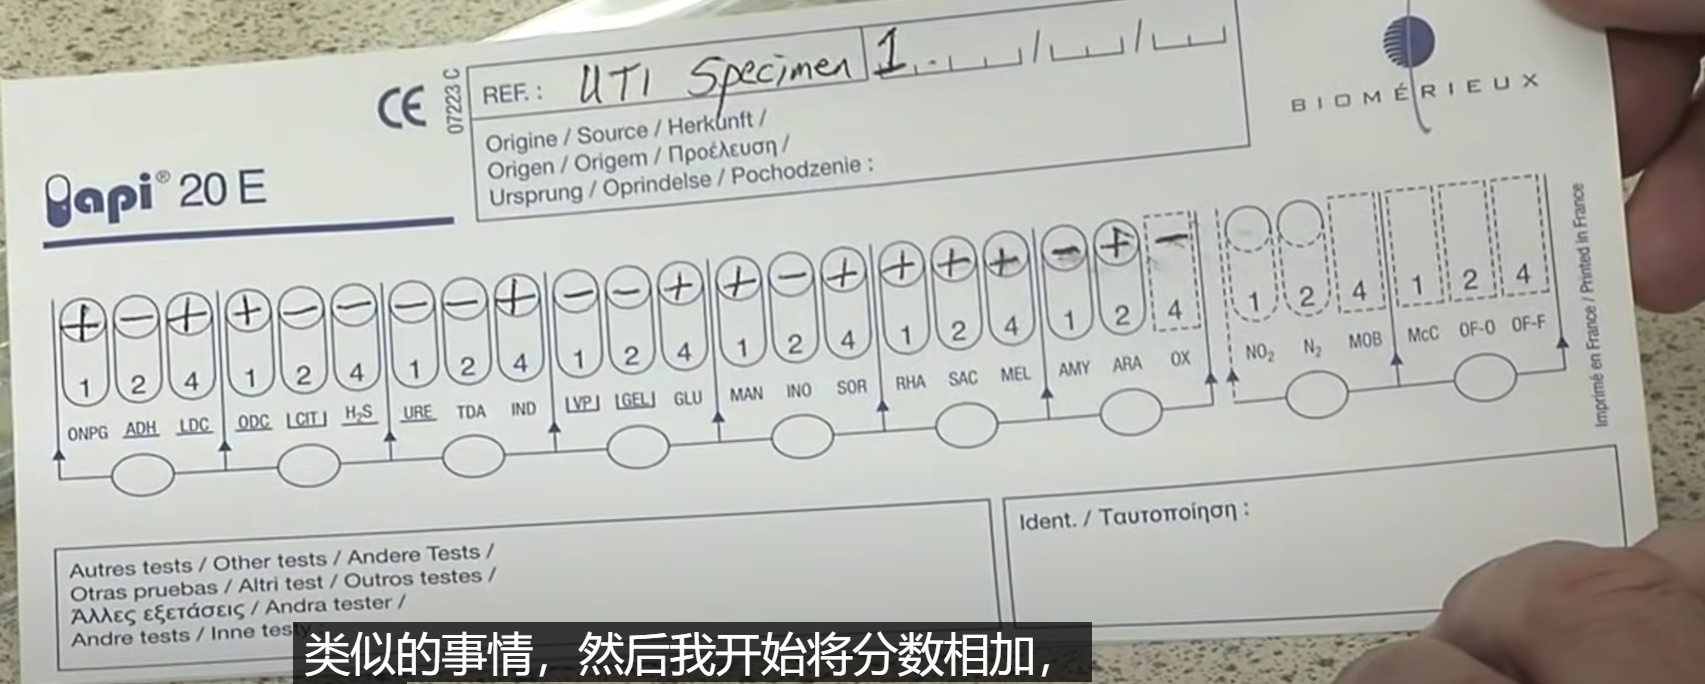 CE
07223 C
REF. : UTI Specimen 1
BIOMÉRIEUX
Origine / Source / Herkunft /
Origen / Origem / Προέλευση /
Ursprung / Oprindelse / Pochodzenie :
api® 20 E
+ − + + − − − − + − − + + − + + + + − + −
1 2 4 1 2 4 1 2 4 1 2 4 1 2 4 1 2 4 1 2 4 1 2 4 1 2 4
ONPG ADH LDC ODC CIT H₂S URE TDA IND VP GEL GLU MAN INO SOR RHA SAC MEL AMY ARA OX NO₂ N₂ MOB McC OF-O OF-F
Imprimé en France / Printed in France
Autres tests / Other tests / Andere Tests /
Otras pruebas / Altri test / Outros testes /
Άλλες εξετάσεις / Andra tester /
Andre tests / Inne testy
Ident. / Ταυτοποίηση :
类似的事情，然后我开始将分数相加，